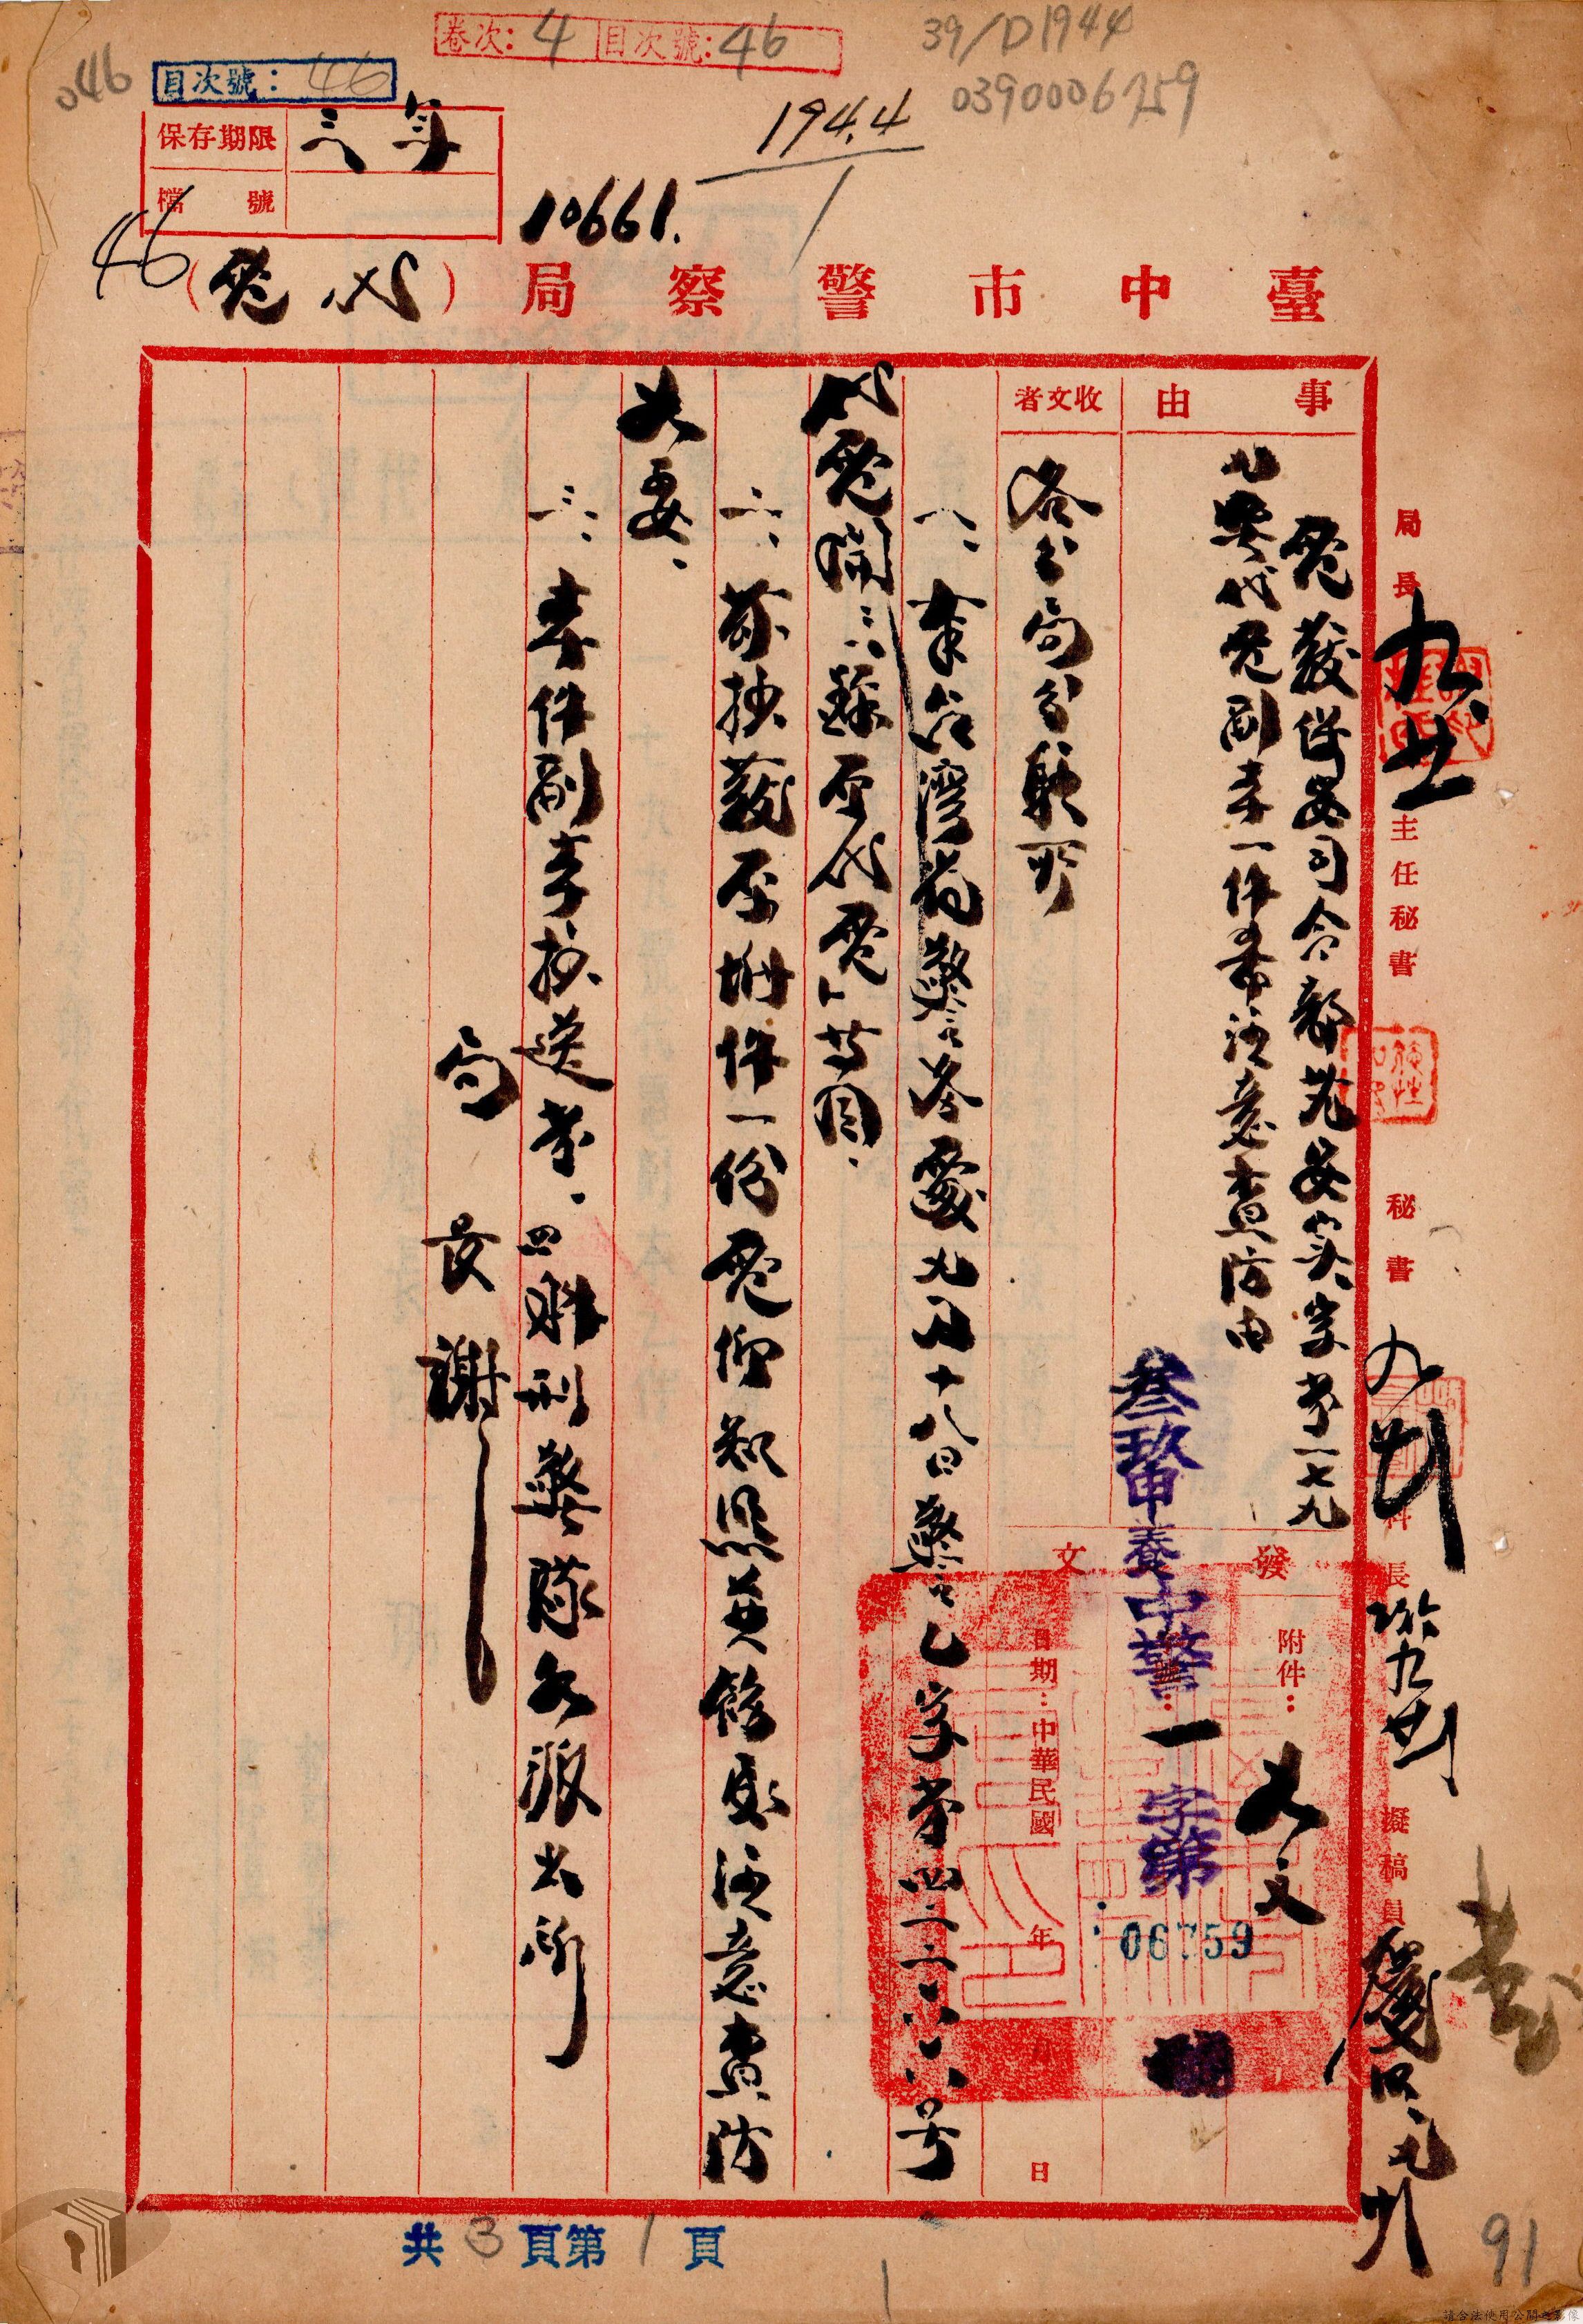 卷次：4 目次號：46
39/D1944
0390006759
046
目次號：46
194.4
1
保存期限 三年
檔號
46
10661.
臺中市警察局（代電）
事由
電發保安司令部苑安實字第一七九
九號代電副本一件希注意查防由
收文者
各分局分駐所
發文
附件：如文
叁玖申養中警一字第：06759號
日期：中華民國 年 月 日
一、奉台灣省警務處九月十八日警乙字第四二二六六号
代電開：「錄原代電」等因、
二、茲抄發原附件一份電仰知照并飭屬注意查防
為要、
三、本件副本抄送本、四課刑警隊各派出所
局長謝
局長
主任秘書
秘書
科長
擬稿員
共3頁第1頁
91
請合法使用公開之影像